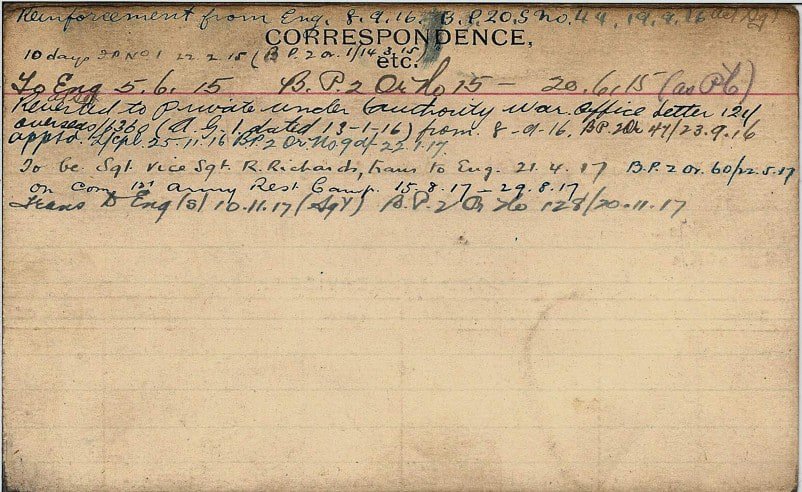 Reinforcement from Eng. 8.9.16. B.P.2 O.S No. 44, 19.9.16
CORRESPONDENCE,
10 days FP No 1 22 2 15 (B P.2 Or. 1/14.3.15
etc.
To Eng 5.6.15 B.P.2 Or No 15 - 20.6.15 (as Pte)
Reverted to private under authority War Office Letter 121/
overseas/636 (A.G.1 dated 13-1-16) from 8-9-16. B.P.2 Or 47/23.9.16
appt'd. L/Cpl 25.11.16 B.P.2 Or No 9 d/ 22.1.17.
To be Sgt vice Sgt. R. Richards, trans to Eng. 21.4.17 B.P.2 Or. 60/22.5.17
on Com 1st Army Rest Camp. 15.8.17 - 29.8.17
Trans to Eng (S) 10.11.17 (Sgt) B.P.2 Or No 128/20.11.17